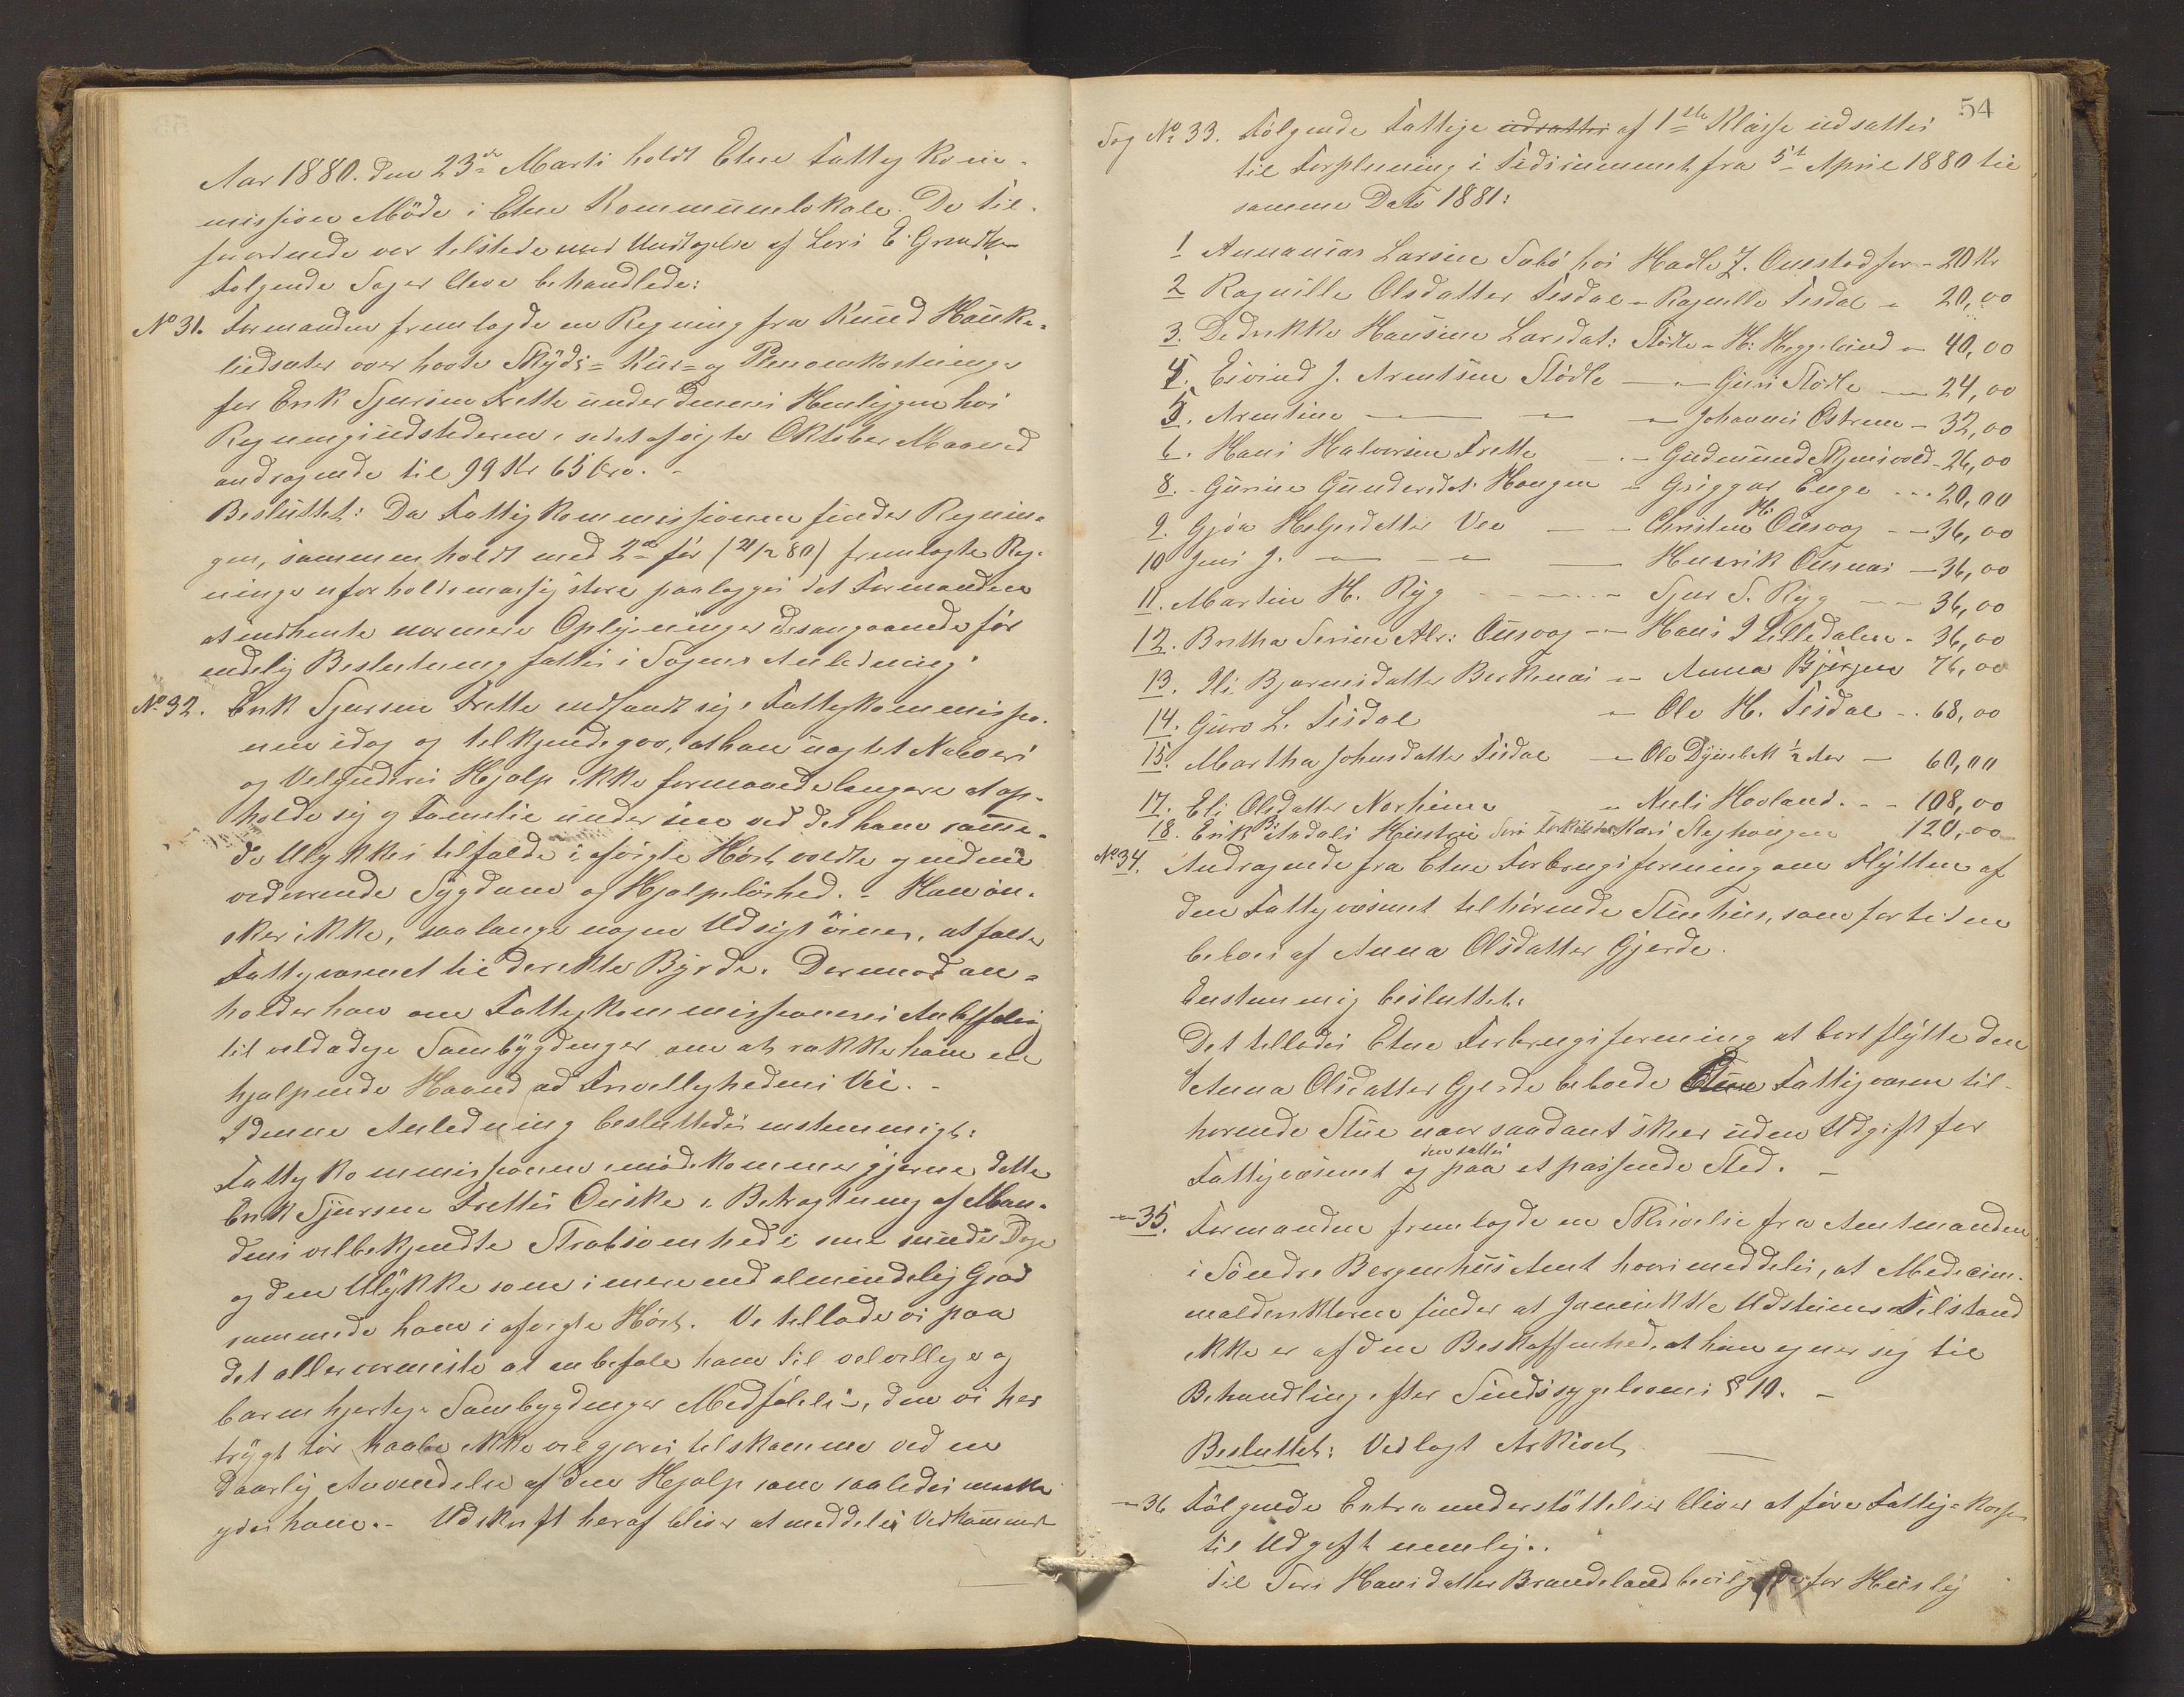 Aar 1880. den 23de Marts holdt Etne Fattigkom-
mission Møde i Etne Kommunelokale. De Til-
forordnede var tilstede med Undtagelse af Lars E. Grindheim
Følgende Sager bleve behandlede:
No 31. Formanden fremlagde en Regning fra Knud Hauke-
lidsæter over havte Skyds- Kur- og Pleieomkostninger
for Erik Sjursen Frette under dennes Henliggen hos
Regningsudstederen i sidst afvigte Oktober Maaned
andragende til 99 Kr 65 Øre. -
Besluttet: Da Fattigkommissionen finder Regnin-
gen, sammenholdt med 2de før (21/2 80) fremlagte Reg-
ninger uforholdsmæssig store paalægges det Formanden
at indhente nærmere Oplysninger desangaaende før
endelig Beslutning fattes i Sagens Anledning.
No 32. Erik Sjursen Frette indfandt sig i Fattigkommissio-
nen idag og tilkjendegav, at han uagtet Naboers
og Velynderes Hjælp ikke formaaede længere at op-
holde sig og Familie under den ved det ham ramme-
de Ulykkestilfælde i afvigte Høst voldte og endnu
vedvarende Sygdom og Hjælpeløshed. - Han øn-
sker ikke, saalænge nogen Udsigt øines, at falde
Fattigvæsenet til direkte Byrde. Derimod an-
holder han om Fattigkommissionens Anbefaling
til veldædige Sambygdinger om at række ham en
hjælpende Haand ad Frivillighedens Vei. -
I denne Anledning besluttedes enstemmigt:
Fattigkommissionen imødekommer gjerne dette
Erik Sjursen Frettes Ønske i Betragtning af Man-
dens velbekjendte Strabsomhed i sine sunde Dage
og den Ulykke som i mere end almindelig Grad
rammede ham i afvigte Høst. Vi tillade os paa
det allervarmeste at anbefale ham til velvillige og
barmhjertige Sambygdinger Medfølelse, den vi her
trygt tør haabe ikke vil gjøres tilskamme ved en
daarlig Anvendelse af den Hjælp som saaledes maatte
ydes ham. - Udskrift heraf bliver at meddeles Vedkommende
54
Sag No 33. Følgende Fattige udsattes af 1ste Klasse udsattes
til Forpleining i Tidsrummet fra 5te April 1880 til
samme Dato 1881:
1 Annanias Larsen Sabø hos Hadle J. Ounestad for - 20 Kr
2 Ragnille Olsdatter Tesdal - Ragnille Tesdal - 20,00
3. Dedrikke Hansine Larsdat: Stødle - H: Heggelund - 40,00
4. Eivind J. Arentsen Stødle - Guri Stødle - 24,00
5. Arentine - - - Johannes Østrem - 32,00
6. Hans Halvorsen Frette - Gudmund Skjensvold - 26,00
8. Gurine Gundersdt. Haugen - Griggar Enge - 20,00
9. Gjøa Helgesdatter Vee - Christen Hs Ousvog - 36,00
10 Jens J. - - - Henrik Ousnæs - 36,00
11. Martin H. Ryg - Sjur S. Ryg - 36,00
12. Bertha Serine Ols: Ousvog - Hans I Lilledalen - 36,00
13. Ili Bjarnesdatter Berkenæs - Anna Bjørgen 76,00
14. Guro L. Tesdal - Ole H. Tesdal - 68,00
15. Martha Johnsdatter Tesdal - Ole Dyrebek 1/2 Aar - 60,00
17. Eli Olsdatter Norheim - Neli Hovland - 108,00
18. Erik Bitsdals Hustru Siri Torkilsdat Kari Steghougen 120,00
No 34. Andragende fra Etne Forbrugsforening om Flytten af
den Fattigvæsenet tilhørende Stuehus, som for tiden
beboes af Anna Olsdatter Gjerde.
Enstemmig besluttet:
Det tillades Etne Forbrugsforening at bortflytte den
af Anna Olsdatter Gjerde beboede Fattigvæsen til-
hørende Stue naar saadant sker uden Udgift for
Fattigvæsenet og den sættes paa et passende Sted. -
- 35. Formanden fremlagde en Skrivelse fra Amtmanden
i Søndre Bergenhus Amt hvori meddeles, at Medicin-
aldirektøren finder at Jannikke Udsteines Tilstand
ikke er af den Beskaffenhed, at hun egner sig til
Behandling efter Sindssygelovens § 10. -
Besluttet: Vedlagt Arkivet
- 36 Følgende Extraunderstøttelser bliver at føre Fattig-Kassen
til Udgift nemlig:
Til Siri Hansdatter Brandeland bevilgedes for Husly